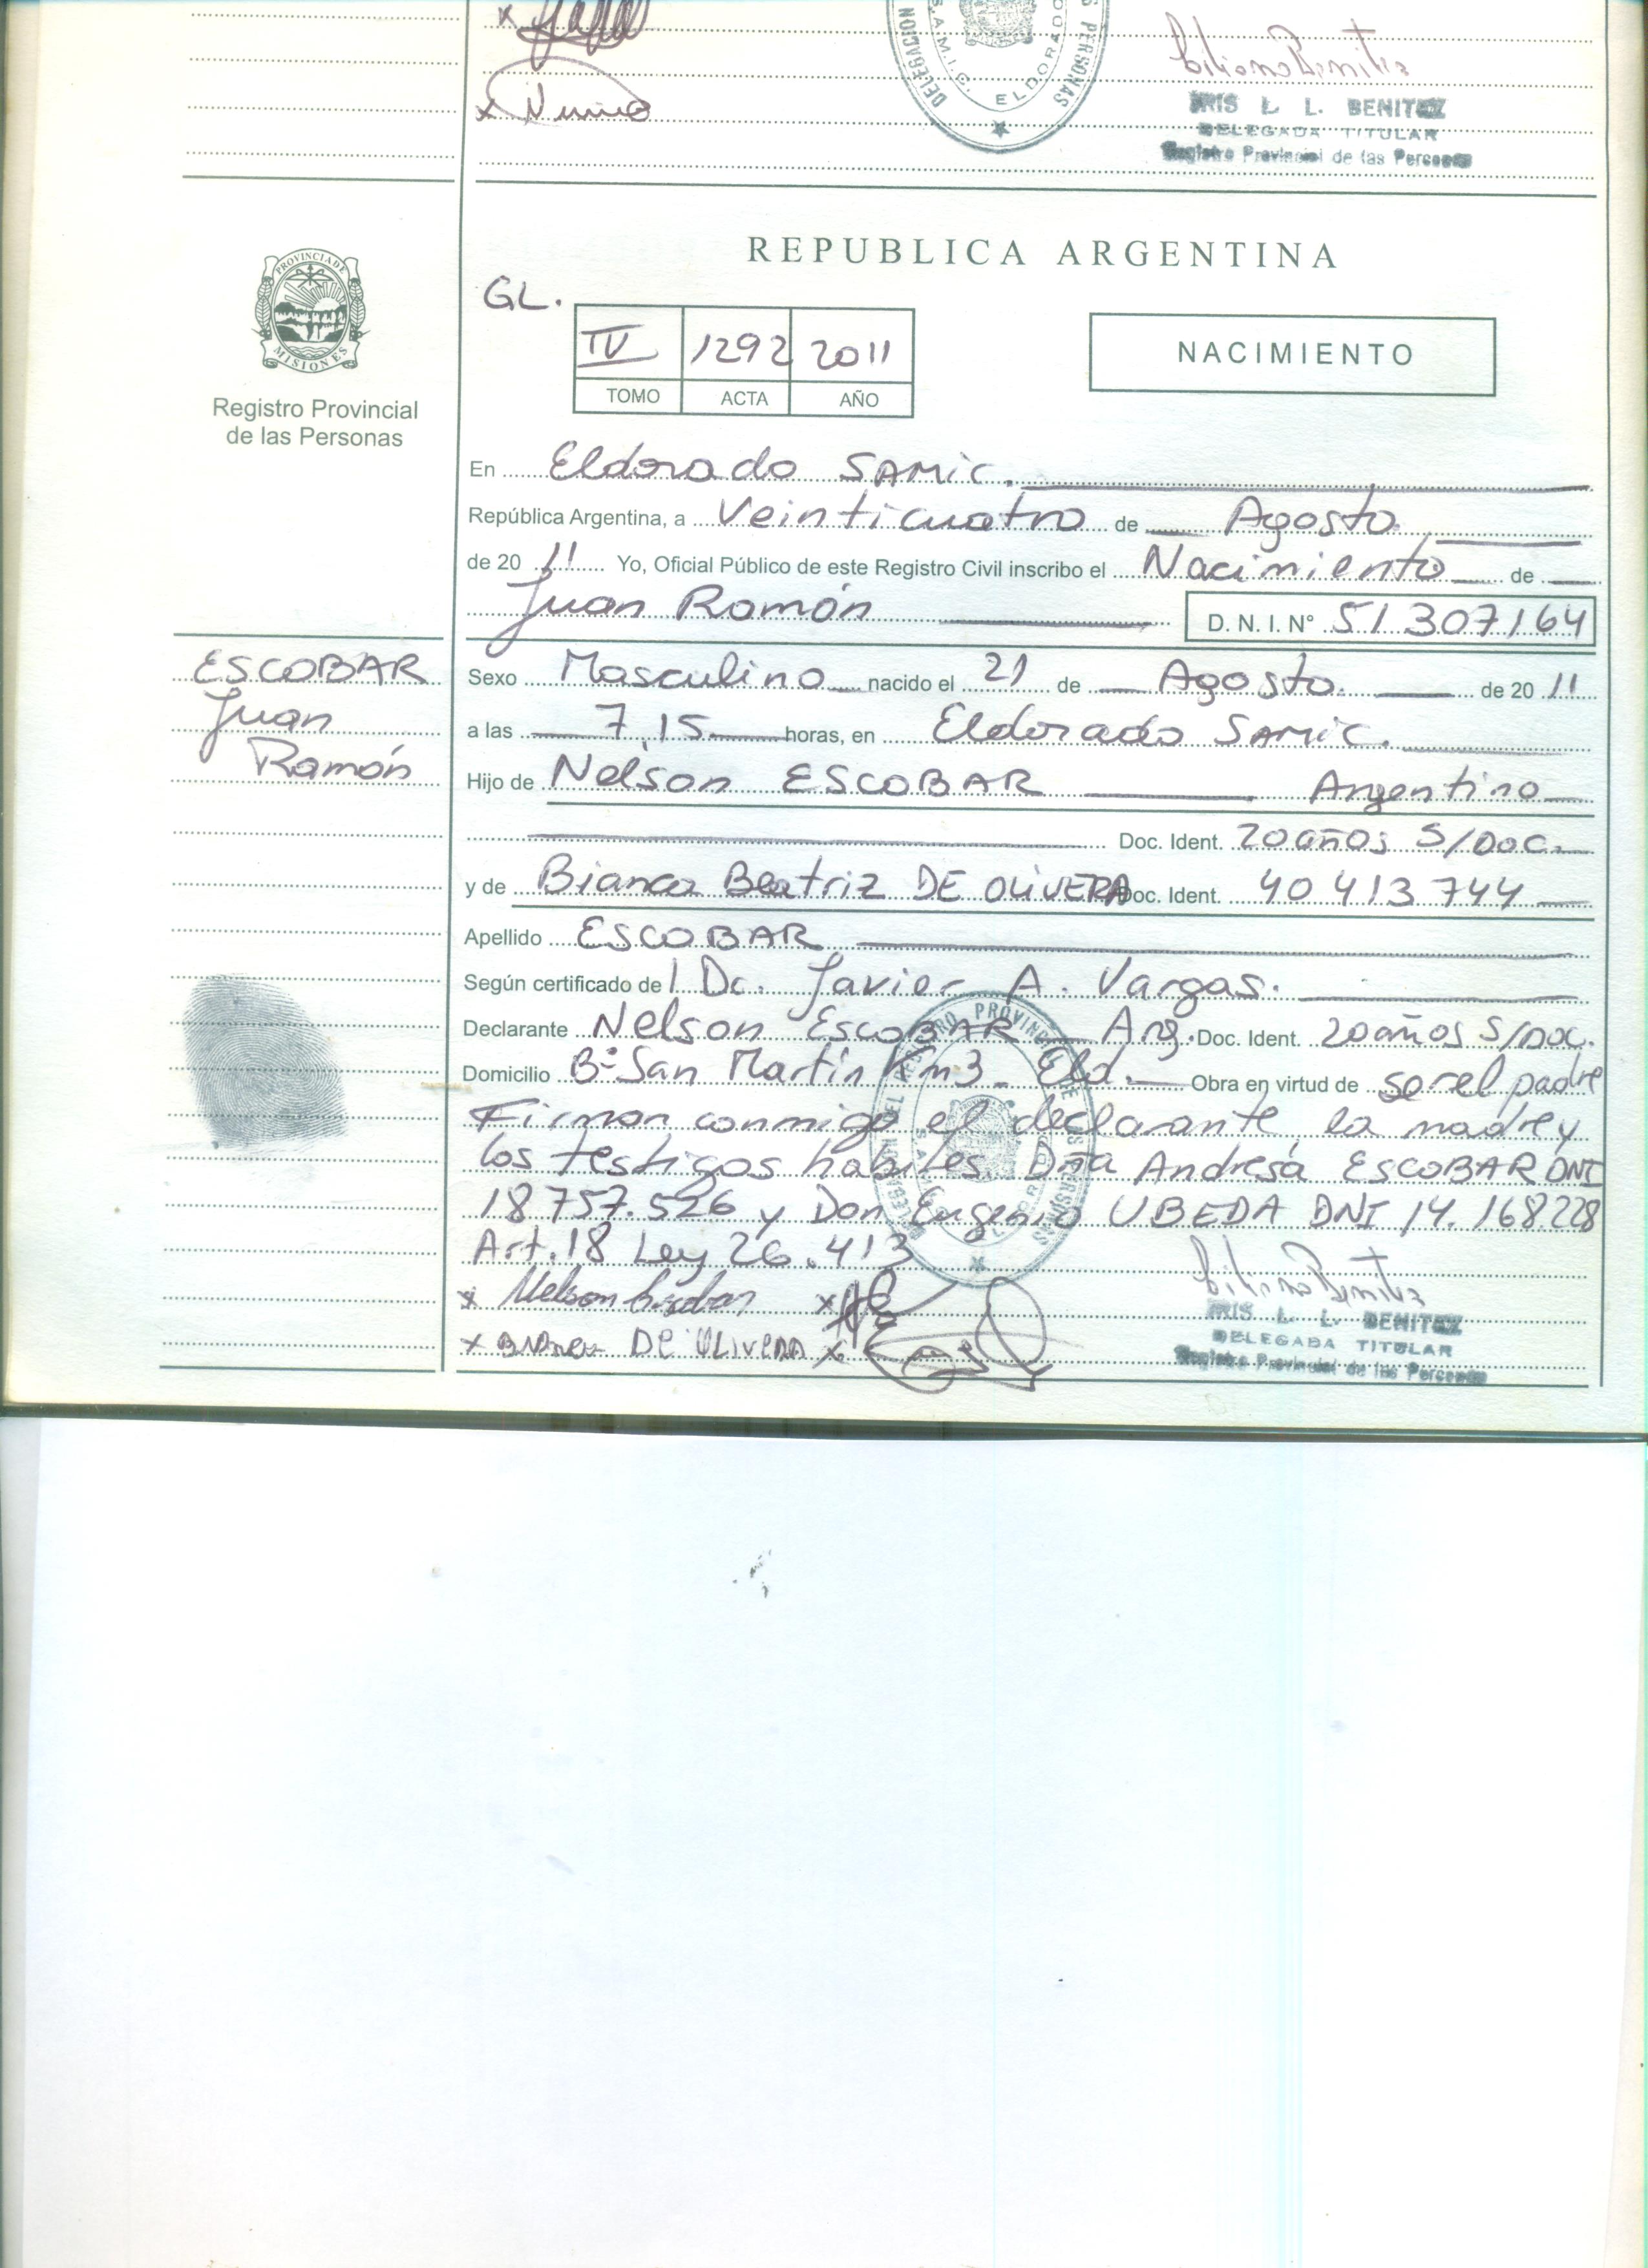 DELEGACION
S.A.M.I.C. ELDORADO
S PERSONAS
IRIS L. L. BENITEZ
DELEGADA TITULAR
Registro Provincial de las Personas
PROVINCIA DE
MISIONES
Registro Provincial
de las Personas
REPUBLICA ARGENTINA
GL.
IV 1292 2011
TOMO ACTA AÑO
NACIMIENTO
En Eldorado SAMIC.
República Argentina, a Veinticuatro de Agosto
de 20 11 Yo, Oficial Público de este Registro Civil inscribo el Nacimiento de
Juan Ramón D. N. I. N° 51.307.164
ESCOBAR
Juan
Ramón
Sexo Masculino nacido el 21 de Agosto de 20 11
a las 7,15 horas, en Eldorado SAMIC.
Hijo de Nelson ESCOBAR Argentino
Doc. Ident. 20 años S/Doc.
y de Bianca Beatriz DE OLIVERA Doc. Ident. 40 413 744
Apellido ESCOBAR
Según certificado de l Dr. Javier A. Vargas.
Declarante Nelson ESCOBAR Arg. Doc. Ident. 20 años S/Doc.
Domicilio Bº San Martín Km3 Eld. Obra en virtud de ser el padre
Firman conmigo el declarante, la madre y
los testigos habiles Dña Andresa ESCOBAR DNI
18 757.526 y Don Eugenio UBEDA DNI 14.168.228
Art. 18 Ley 26.413
x Nelson Escobar x
x DE OLIVERA x
IRIS L. L. BENITEZ
DELEGADA TITULAR
Registro Provincial de las Personas